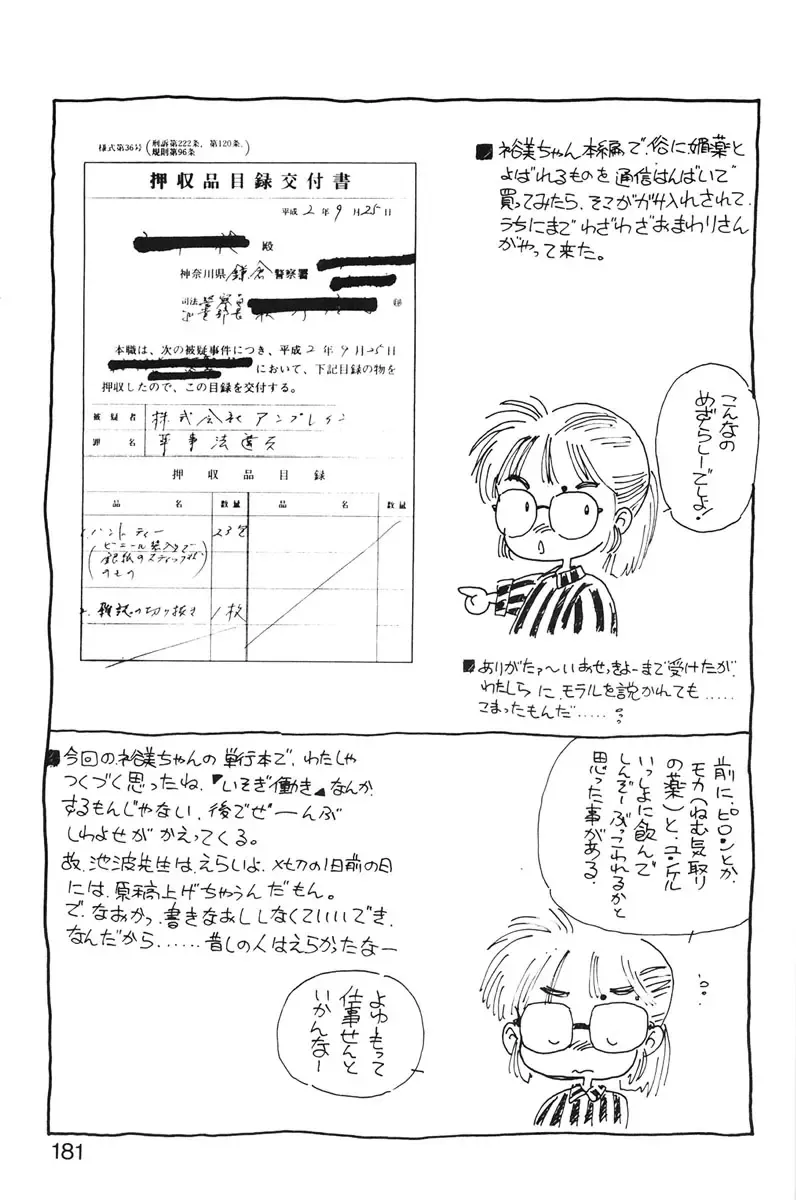 ■裕美ちゃん本編で、俗に媚薬と
よばれるものを通信はんばいで
買ってみたら、そこがガサ入れされて、
うちにまでわざわざおまわりさん
がやって来た。
様式第36号(刑訴第222条、第120条、
規則第96条)
押収品目録交付書
平成2年9月25日
殿
神奈川県鎌倉警察署
司法警察員
巡査部長
㊞
本職は、次の被疑事件につき、平成2年9月25日
において、下記目録の物を
押収したので、この目録を交付する。
被疑者 株式会社アンブレイン
罪名 薬事法違反
押収品目録
品名 数量 品名 数量
1. ハントティー 23包
(ビニール袋入りで
銀紙のスティック状
のもの)
2. 雑誌の切り抜き 1枚
こんなの
めずらしーでしょ!
■ありがたァ〜いおせっきょーまで受けたが、
わたしらに、モラルを説かれても‥‥‥
こまったもんだ‥‥‥
前に、ピロンとか、
モカ(ねむ気取り
の薬)と、ユンケル
いっしょに飲んで
しんぞーぶっこわれるかと
思った事がある。
■今回の裕美ちゃんの単行本で、わたしゃ
つくづく思ったね、『いそぎ働き』なんか、
するもんじゃない、後でぜーんぶ
しわよせがかえってくる。
故、池波先生は、えらいよ、〆切の1日前の日
には、原稿上げちゃうんだもん。
で、なおかつ、書きなおししなくていいでき、
なんだから、‥‥‥昔しの人はえらかったなー
よゆもって
仕事せんと
いかんなー
181